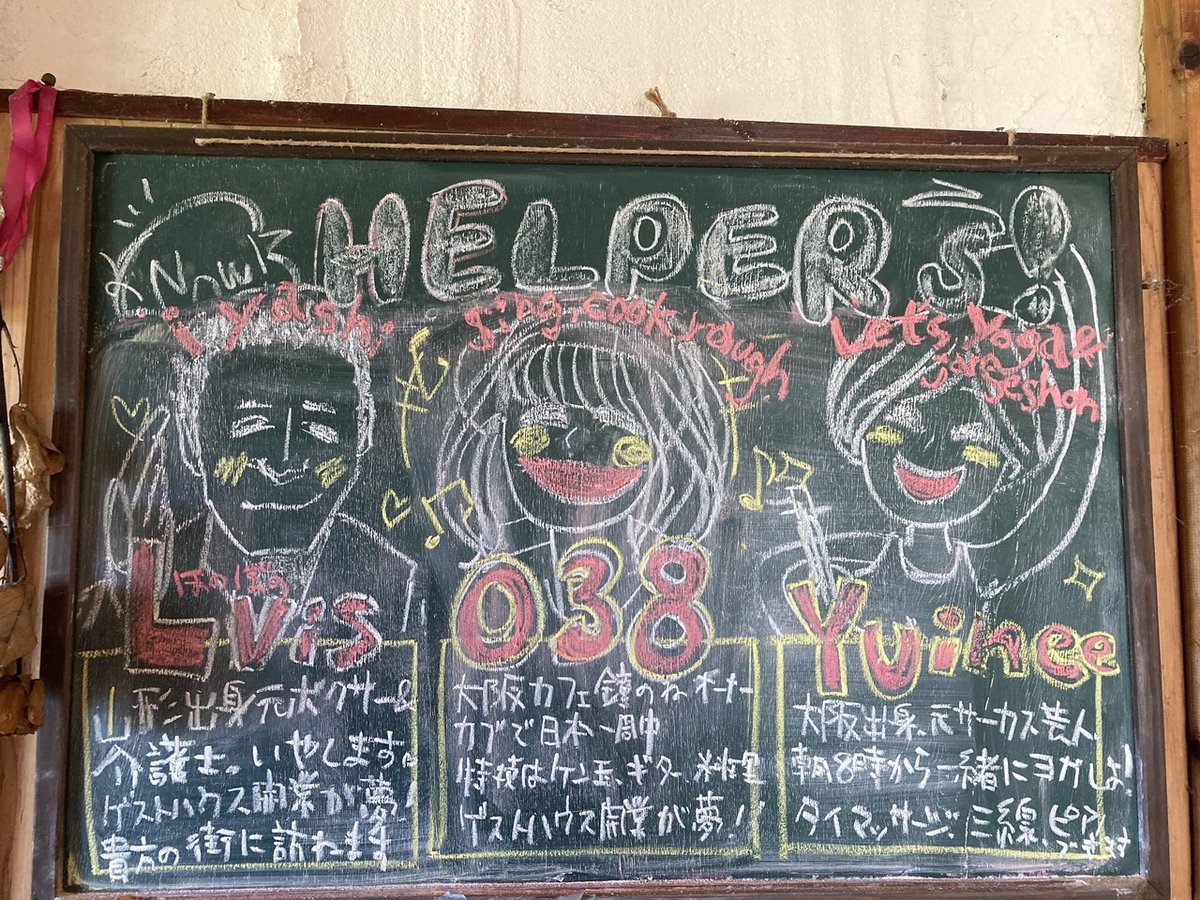 Now
HELPERS
iyashi
sing, cook, rough
Let's Yoga &
Jam seshon
ほのぼの
Lvis
038
Yuihee
山形出身元ボクサー&
介護士。いやします。
ゲストハウス開業が夢!
貴方の街に訪ねます
大阪カフェ鐘のねオーナー
カブで日本一周中
特技はケン玉、ギター、料理
ゲストハウス開業が夢!
大阪出身、元サーカス芸人、
朝8時から一緒にヨガしよ!
タイマッサージ、三線、ピアス
できます